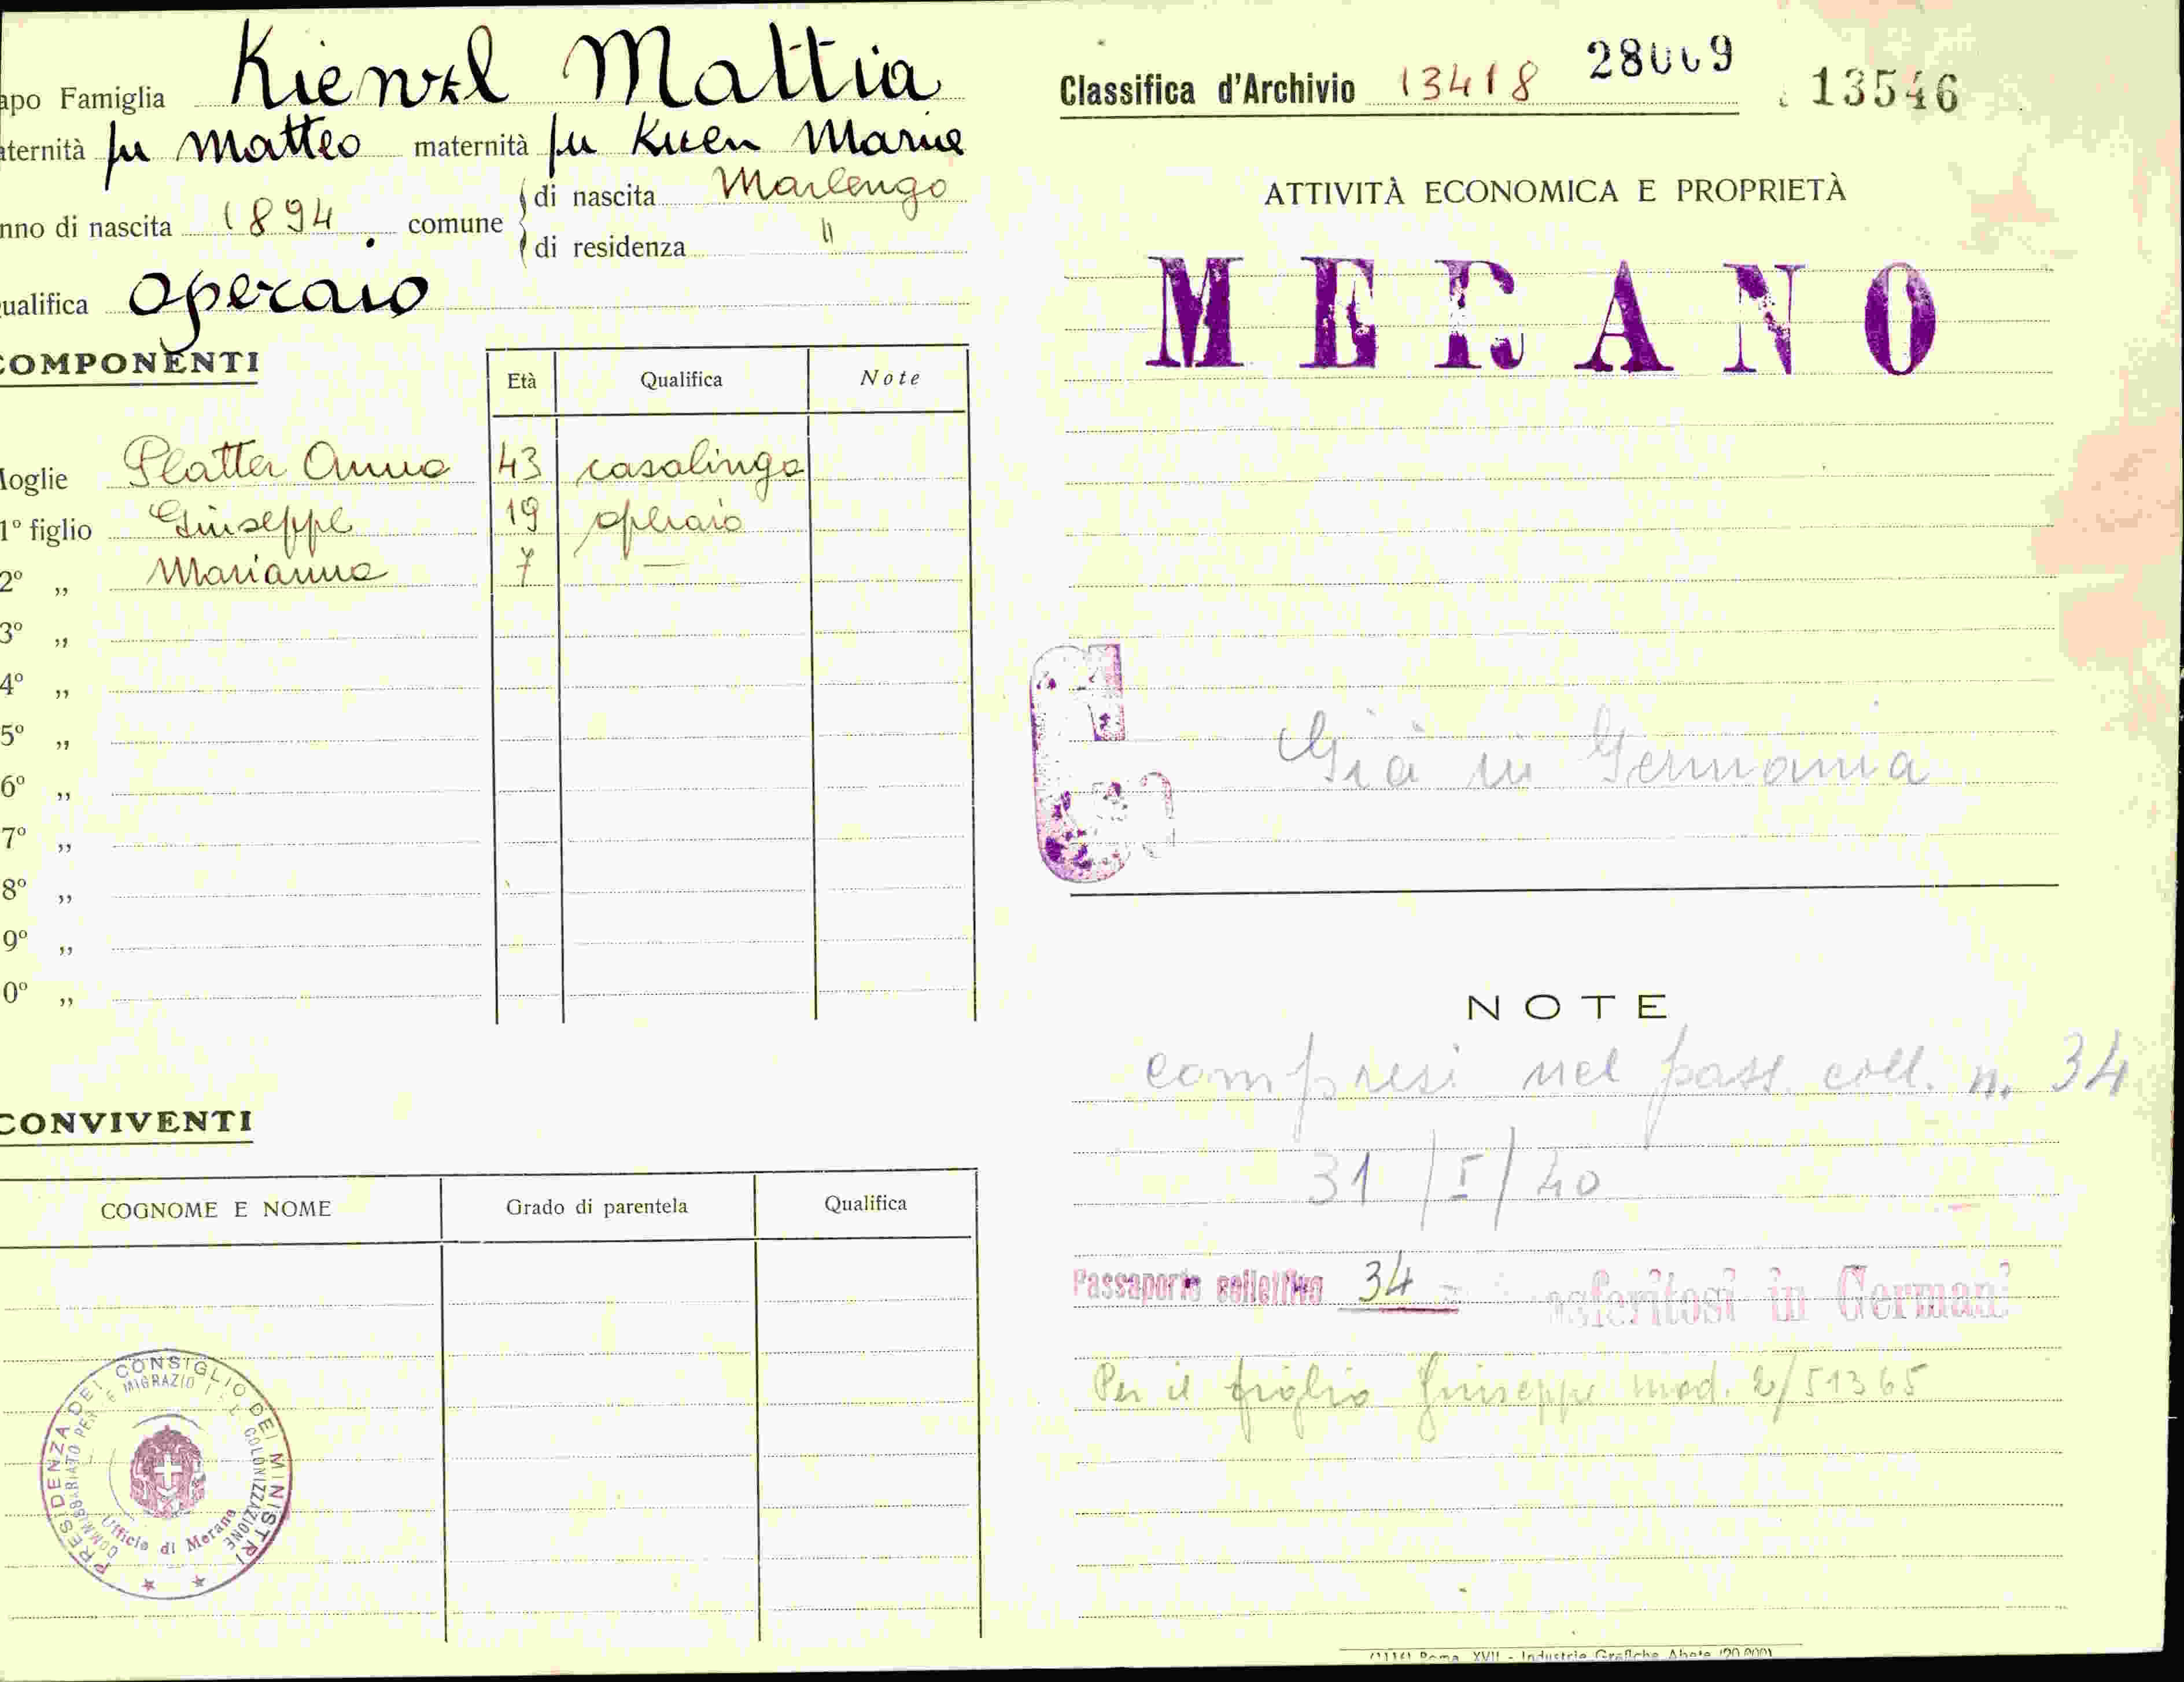 apo Famiglia Kienzl Mattia
aternità fu Matteo maternità fu Kuen Maria
nno di nascita 1894. comune di nascita Marlengo
di residenza "
ualifica operaio
COMPONENTI
Età Qualifica Note
Moglie Platter Anna 43 casalinga
1º figlio Giuseppe 19 operaio
2º „ Marianna 7 —
3º „
4º „
5º „
6º „
7º „
8º „
9º „
0º „
CONVIVENTI
COGNOME E NOME Grado di parentela Qualifica
PRESIDENZA DEL CONSIGLIO DEI MINISTRI
COMMISSARIATO PER LE MIGRAZIONI E LA COLONIZZAZIONE
Ufficio di Merano
Classifica d'Archivio 13418 28009 13546
ATTIVITÀ ECONOMICA E PROPRIETÀ
MERANO
Già in Germania
NOTE
compresi nel pass. coll. n. 34
31/I/40
Passaporto collettivo 34 asferitosi in Germani
Per il figlio Giuseppe mod. 2/51365
Roma XVII - Industrie Grafiche Abete (20.000)